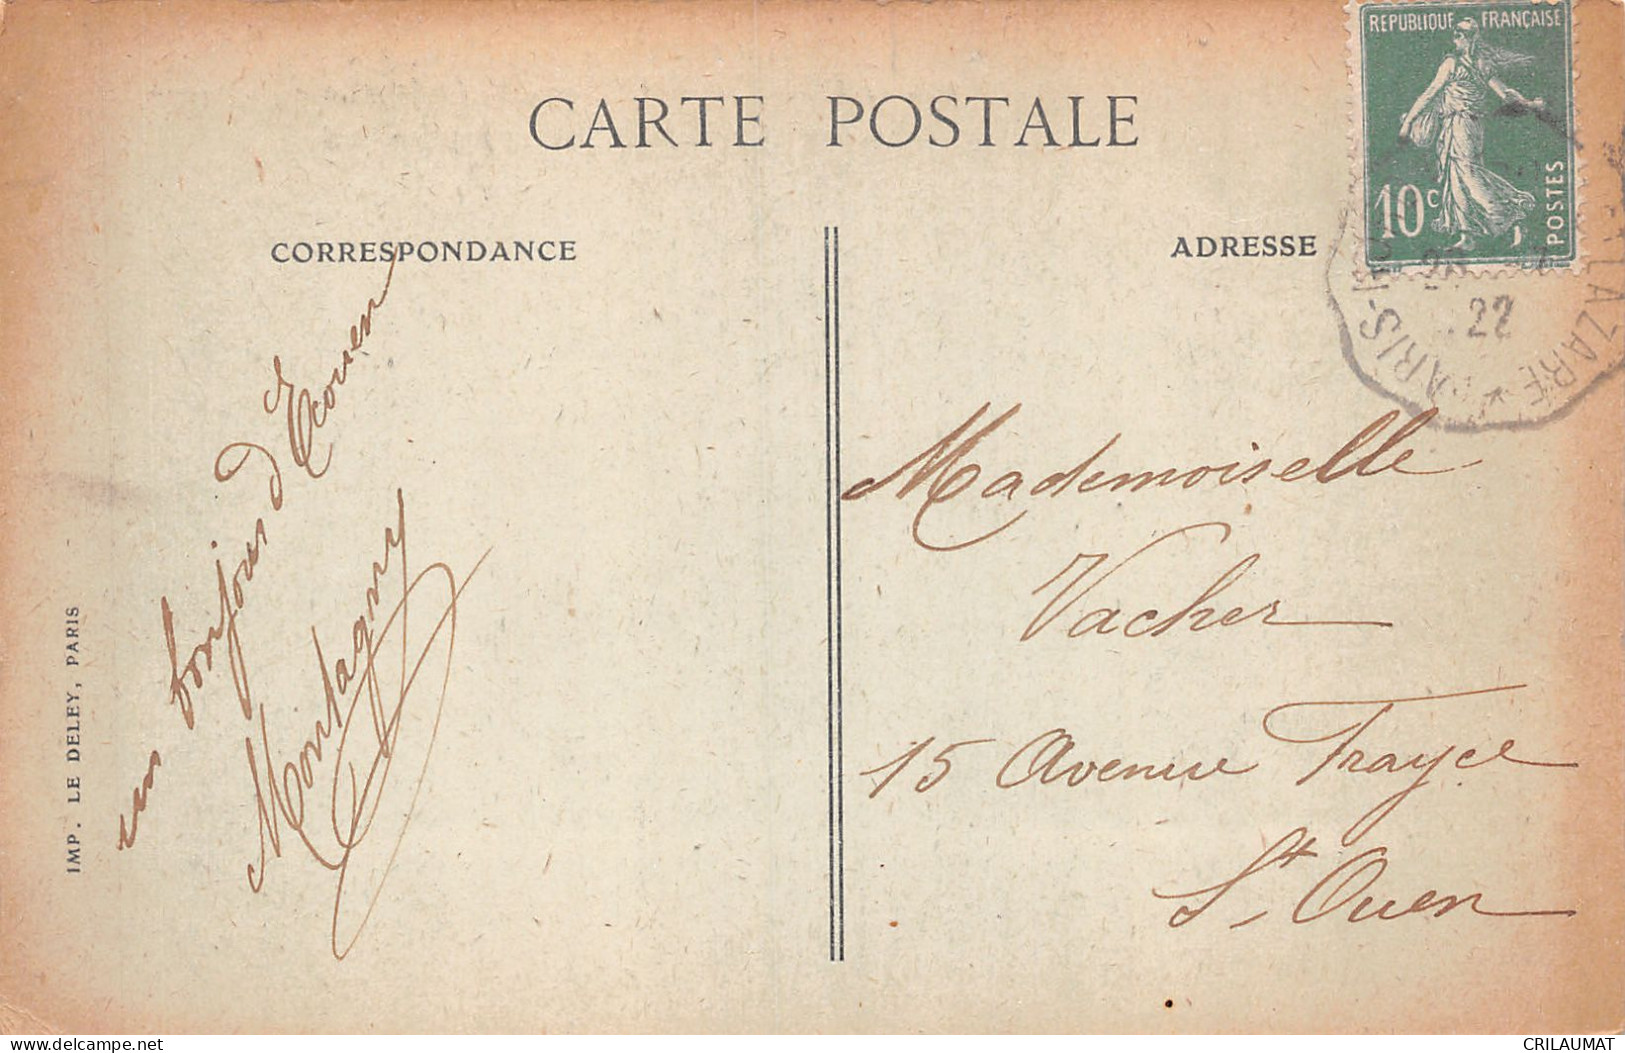 REPUBLIQUE FRANÇAISE
10c
POSTES
CARTE POSTALE
CORRESPONDANCE
ADRESSE
22
PARIS-
LAZARE
un bonjour d'Ecouen
Montagny
Mademoiselle
Vacher
15 Avenue Trayce
St Ouen
IMP. LE DELEY, PARIS
www.delcampe.net
CRILAUMAT